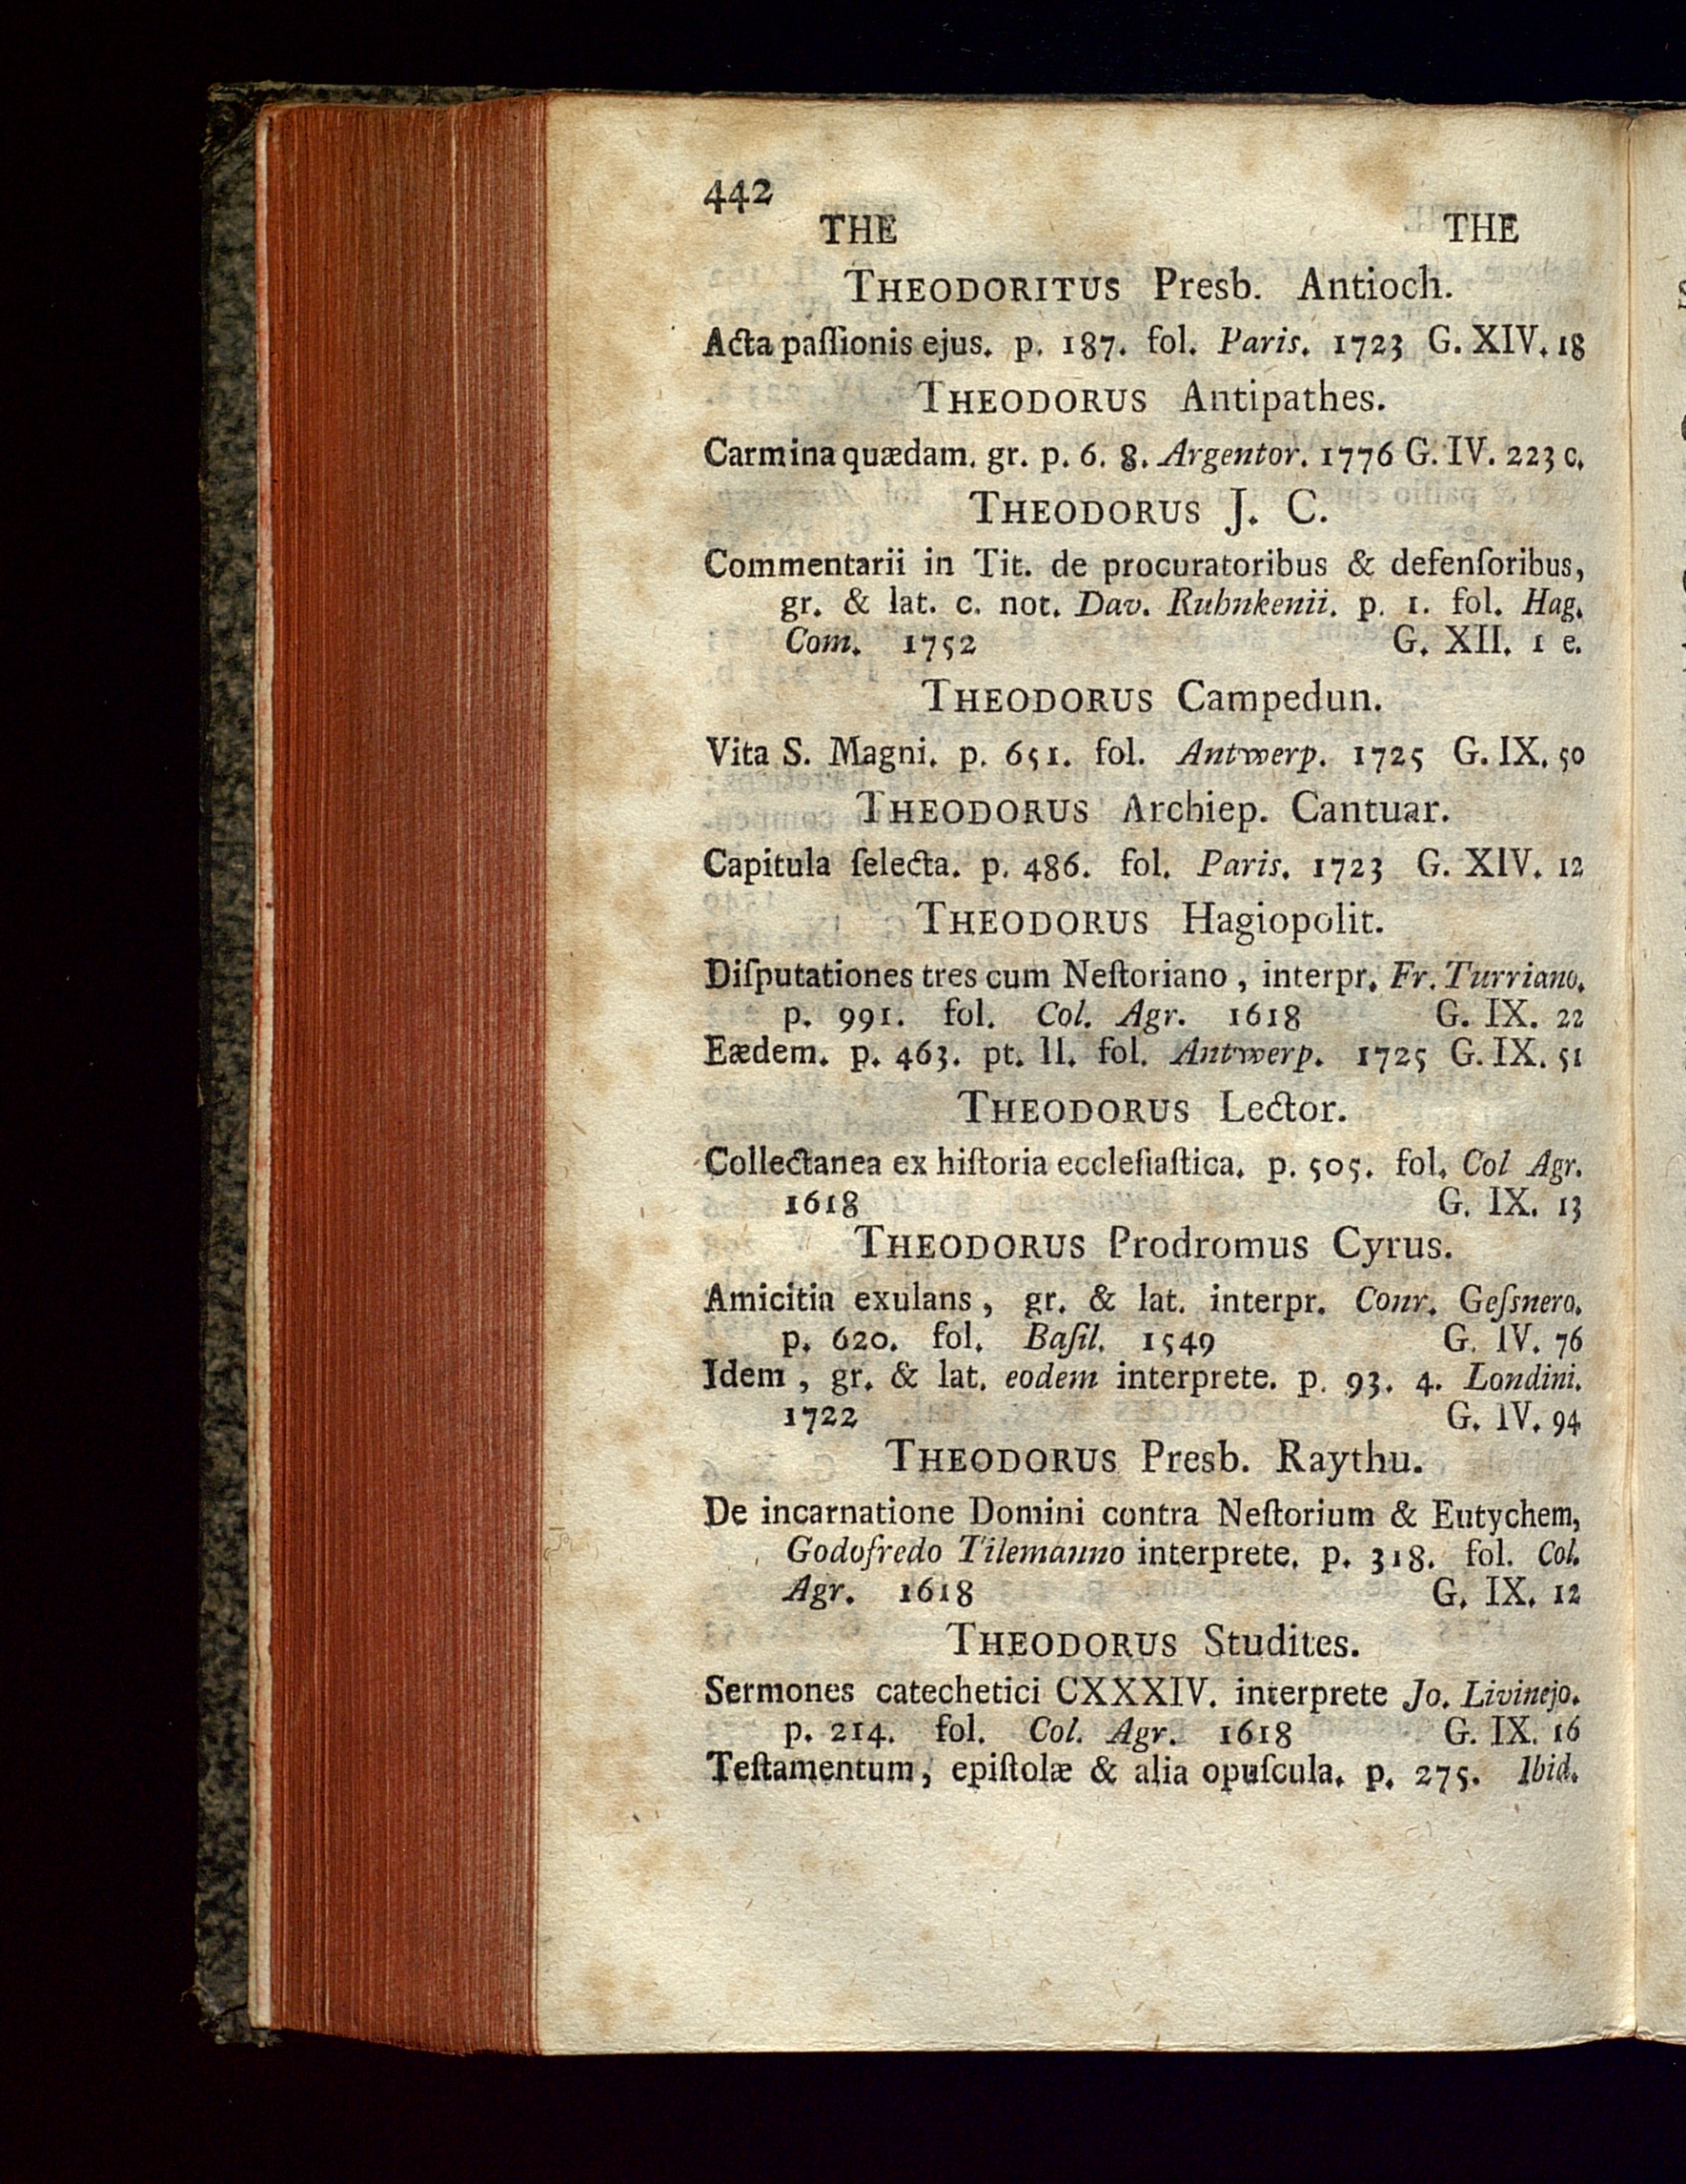 442
THE THE
THEODORITUS Presb. Antioch.
Acta paſſionis ejus. p. 187. fol. Paris. 1723 G. XIV. 18
THEODORUS Antipathes.
Carmina quædam. gr. p. 6. 8. Argentor. 1776 G. IV. 223 c.
THEODORUS J. C.
Commentarii in Tit. de procuratoribus & defenſoribus,
gr. & lat. c. not. Dav. Ruhnkenii. p. 1. fol. Hag.
Com. 1752 G. XII. 1 e.
THEODORUS Campedun.
Vita S. Magni. p. 651. fol. Antwerp. 1725 G. IX. 50
THEODORUS Archiep. Cantuar.
Capitula ſelecta. p. 486. fol. Paris. 1723 G. XIV. 12
THEODORUS Hagiopolit.
Diſputationes tres cum Neſtoriano, interpr. Fr. Turriano.
p. 991. fol. Col. Agr. 1618 G. IX. 22
Eædem. p. 463. pt. II. fol. Antwerp. 1725 G. IX. 51
THEODORUS Lector.
Collectanea ex hiſtoria eccleſiaſtica. p. 505. fol. Col Agr.
1618 G. IX. 13
THEODORUS Prodromus Cyrus.
Amicitia exulans, gr. & lat. interpr. Conr. Geſsnero.
p. 620. fol. Baſil. 1549 G. IV. 76
Idem, gr. & lat. eodem interprete. p. 93. 4. Londini.
1722 G. IV. 94
THEODORUS Presb. Raythu.
De incarnatione Domini contra Neſtorium & Eutychem,
Godofredo Tilemanno interprete. p. 318. fol. Col.
Agr. 1618 G. IX. 12
THEODORUS Studites.
Sermones catechetici CXXXIV. interprete Jo. Livinejo.
p. 214. fol. Col. Agr. 1618 G. IX. 16
Teſtamentum, epiſtolæ & alia opuſcula. p. 275. Ibid.